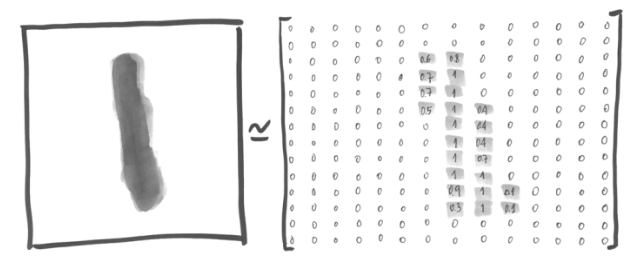 0 0 0 0 0 0 0 0 0 0 0 0 0 0
0 0 0 0 0 0 0 0 0 0 0 0 0 0
0 0 0 0 0 0 0.6 0.8 0 0 0 0 0 0
0 0 0 0 0 0 0.7 1 0 0 0 0 0 0
0 0 0 0 0 0 0.7 1 0 0 0 0 0 0
0 0 0 0 0 0 0.5 1 0.4 0 0 0 0 0
≃ 0 0 0 0 0 0 0 1 0.4 0 0 0 0 0
0 0 0 0 0 0 0 1 0.4 0 0 0 0 0
0 0 0 0 0 0 0 1 0.7 0 0 0 0 0
0 0 0 0 0 0 0 1 1 0 0 0 0 0
0 0 0 0 0 0 0 0.9 1 0.1 0 0 0 0
0 0 0 0 0 0 0 0.3 1 0.1 0 0 0 0
0 0 0 0 0 0 0 0 0 0 0 0 0 0
0 0 0 0 0 0 0 0 0 0 0 0 0 0